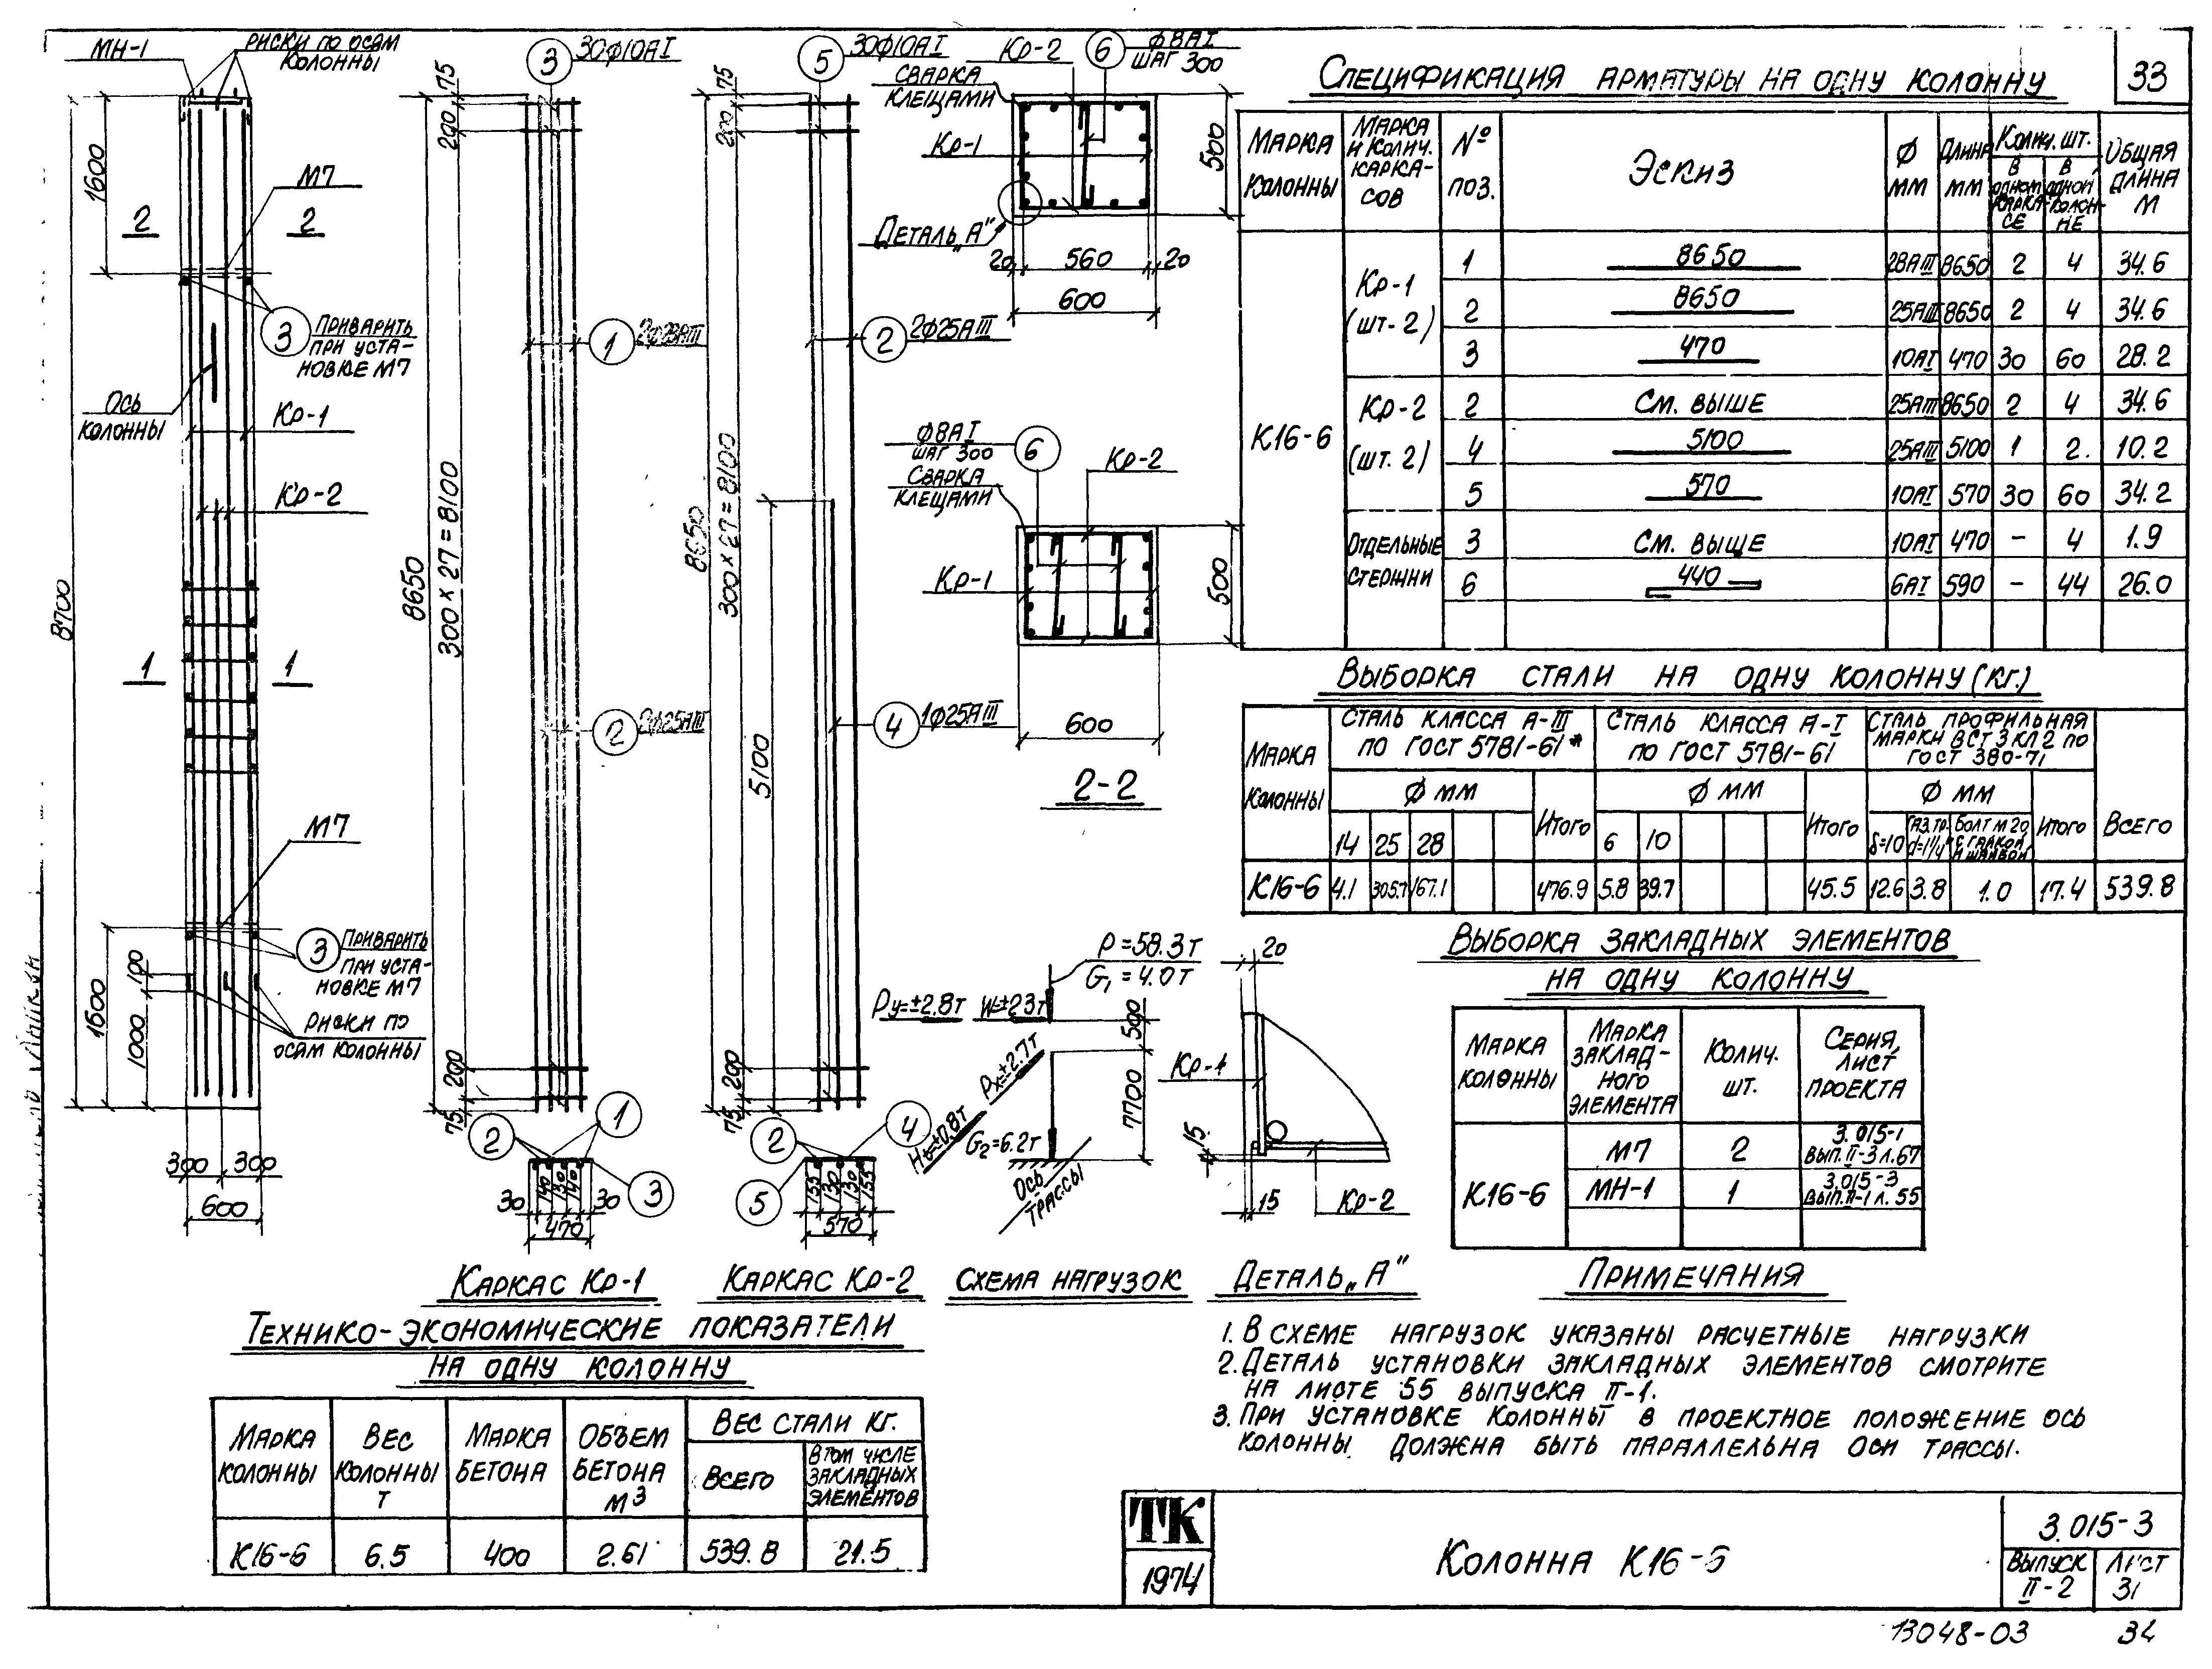 33
МН-1
РИСКИ ПО ОСЯМ
КОЛОННЫ
1600
М7
2 2
3 ПРИВАРИТЬ
ПРИ УСТА-
НОВКЕ М7
ОСЬ
КОЛОННЫ
КР-1
КР-2
8700
1 1
М7
3 ПРИВАРИТЬ
ПРИ УСТА-
НОВКЕ М7
1600
100
1000
РИСКИ ПО
ОСЯМ КОЛОННЫ
300 300
600
3 30Ф10АI
75
200
1 2Ф28АIII
8650
300×27=8100
2 2Ф25АIII
200
75
2 1
3
30 140 130 140 30
470
КАРКАС КР-1
5 30Ф10АI
75
200
2 2Ф25АIII
8650
300×27=8100
5100
4 1Ф25АIII
200
75
2 4
5
155 130 130 155
570
КАРКАС КР-2
КР-2
6 Ф8АI
ШАГ 300
СВАРКА
КЛЕЩАМИ
КР-1
ДЕТАЛЬ „А"
500
20 560 20
600
Ф8АI
ШАГ 300
6
КР-2
СВАРКА
КЛЕЩАМИ
КР-1
500
600
2-2
P=58.3т
G₁=4.0т
Py=±2.8т W=±2.3т
500
Px=±2.7т
7700
G₂=6.2т
ОСЬ
ТРАССЫ
СХЕМА НАГРУЗОК
20
КР-1
15
15
КР-2
ДЕТАЛЬ „А"
СПЕЦИФИКАЦИЯ АРМАТУРЫ НА ОДНУ КОЛОННУ
МАРКА КОЛОННЫ | МАРКА И КОЛИЧ. КАРКАСОВ | № ПОЗ. | ЭСКИЗ | Ф ММ | ДЛИНА ММ | КОЛИЧ. ШТ. В ОДНОМ КАРКАСЕ | В ОДНОЙ КОЛОННЕ | ОБЩАЯ ДЛИНА М
К16-6
КР-1 (ШТ-2)
1 8650 28АIII 8650 2 4 34.6
2 8650 25АIII 8650 2 4 34.6
3 470 10АI 470 30 60 28.2
КР-2 (ШТ. 2)
2 СМ. ВЫШЕ 25АIII 8650 2 4 34.6
4 5100 25АIII 5100 1 2. 10.2
5 570 10АI 570 30 60 34.2
ОТДЕЛЬНЫЕ СТЕРЖНИ
3 СМ. ВЫШЕ 10АI 470 – 4 1.9
6 440 6АI 590 – 44 26.0
ВЫБОРКА СТАЛИ НА ОДНУ КОЛОННУ (КГ.)
МАРКА КОЛОННЫ
СТАЛЬ КЛАССА А-III
ПО ГОСТ 5781-61*
СТАЛЬ КЛАССА А-I
ПО ГОСТ 5781-61
СТАЛЬ ПРОФИЛЬНАЯ
МАРКИ ВСТ 3 КЛ 2 ПО
ГОСТ 380-71
Ф ММ Ф ММ Ф ММ
14 25 28 ИТОГО 6 10 ИТОГО δ=10 ГАЗ. ТР. d=1¼" БОЛТ М 20 С ГАЙКОЙ И ШАЙБОЙ ИТОГО ВСЕГО
К16-6 4.1 305.7 167.1 476.9 5.8 39.7 45.5 12.6 3.8 1.0 17.4 539.8
ВЫБОРКА ЗАКЛАДНЫХ ЭЛЕМЕНТОВ
НА ОДНУ КОЛОННУ
МАРКА КОЛОННЫ | МАРКА ЗАКЛАД-НОГО ЭЛЕМЕНТА | КОЛИЧ. ШТ. | СЕРИЯ, ЛИСТ ПРОЕКТА
К16-6
М7 2 3.015-1 ВЫП. II-3 Л.67
МН-1 1 3.015-3 ВЫП. II-1 Л. 55
ПРИМЕЧАНИЯ
1. В СХЕМЕ НАГРУЗОК УКАЗАНЫ РАСЧЕТНЫЕ НАГРУЗКИ
2. ДЕТАЛЬ УСТАНОВКИ ЗАКЛАДНЫХ ЭЛЕМЕНТОВ СМОТРИТЕ
НА ЛИСТЕ 55 ВЫПУСКА II-1.
3. ПРИ УСТАНОВКЕ КОЛОННЫ В ПРОЕКТНОЕ ПОЛОЖЕНИЕ ОСЬ
КОЛОННЫ ДОЛЖНА БЫТЬ ПАРАЛЛЕЛЬНА ОСИ ТРАССЫ.
ТЕХНИКО-ЭКОНОМИЧЕСКИЕ ПОКАЗАТЕЛИ
НА ОДНУ КОЛОННУ
МАРКА КОЛОННЫ | ВЕС КОЛОННЫ Т | МАРКА БЕТОНА | ОБЪЕМ БЕТОНА М3 | ВЕС СТАЛИ КГ. ВСЕГО | В ТОМ ЧИСЛЕ ЗАКЛАДНЫХ ЭЛЕМЕНТОВ
К16-6 6.5 400 2.61 539.8 21.5
ТК
1974
КОЛОННА К16-6
3.015-3
ВЫПУСК
II-2
ЛИСТ
31
13048-03 34